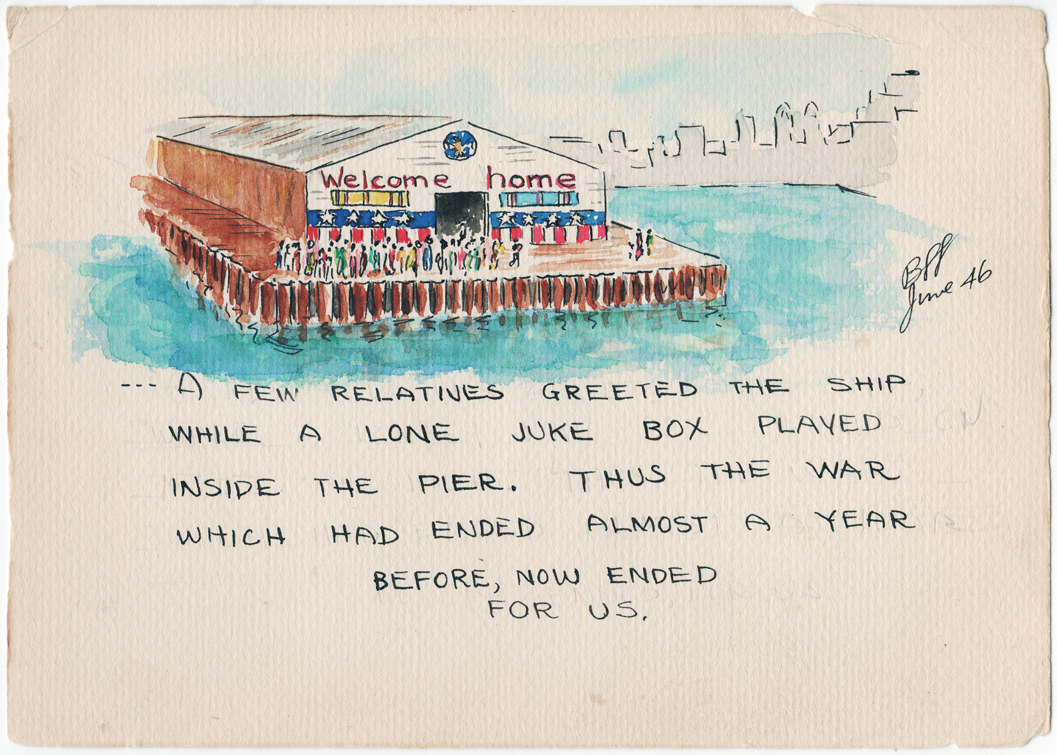 Welcome home
BPP
June 46
--- A FEW RELATIVES GREETED THE SHIP,
WHILE A LONE JUKE BOX PLAYED
INSIDE THE PIER. THUS THE WAR
WHICH HAD ENDED ALMOST A YEAR
BEFORE, NOW ENDED
FOR US.